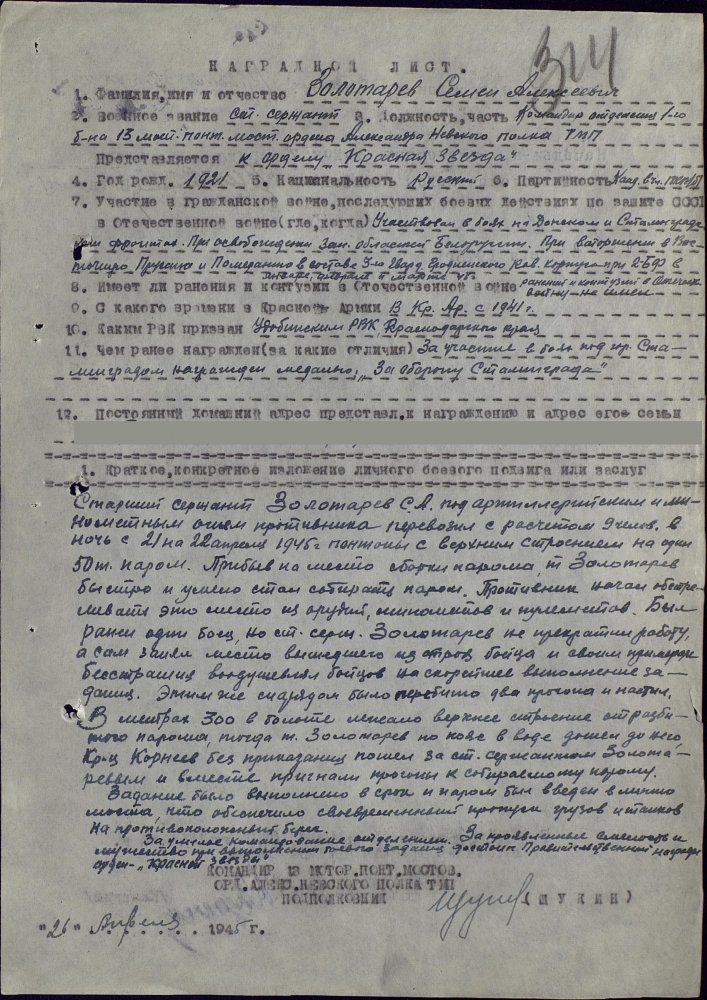 314
НАГРАДНОЙ ЛИСТ.
1. Фамилия,имя и отчество Золотарев Семен Алексеевич
2. Военное звание Ст. сержант 3. Должность,часть Командир отделения 1-го
б-на 13 мот. понт. мост. ордена Александра Невского полка ТМП
Представляется к ордену "Красная Звезда"
4. Год рожд. 1921 5. Национальность Русский 6. Партийность Канд. в чл. ВКП/б/
7. Участие в гражданской войне,последующих боевых действиях по защите СССР
в Отечественной войне(где,когда) Участвовал в боях на Донском и Сталинград-
ском фронтах. При освобождении Зап. областей Белоруссии. При вторжении в Вос-
точную Пруссию и Померанию в составе 3-го Гвард. Гродненского Кав. Корпуса при 2-БФ в
январе, феврале и марте 45г.
8. Имеет ли ранения и контузии в Отечественной войне ранений и контузий в Отечеств.
войну - не имеет
9. С какого времени в Красной Армии В Кр. Ар. с 1941 г.
10. Каким РВК призван Удобинским РВК Краснодарского края
11. Чем ранее награжден(за какие отличия) За участие в боях под гор. Ста-
линградом награжден медалью "За оборону Сталинграда"
12. Постоянный домашний адрес представл.к награждению и адрес его семьи
1. Краткое,конкретное изложение личного боевого подвига или заслуг
Старший сержант Золотарев С.А. под артиллерийским и ми-
нометным огнем противника перевозил с расчетом 9 челов. в
ночь с 21 на 22 апреля 1945 г понтоны с верхним строением на один
50 т. паром. Прибыв на место сборки парома, т Золотарев
быстро и умело стал собирать паром. Противник начал обстре-
ливать это место из орудий, минометов и пулеметов. Был
ранен один боец, но ст. серж. Золотарев не прекратил работу,
а сам занял место вышедшего из строя бойца и своим примером
бесстрашия воодушевлял бойцов на скорейшее выполнение за-
дания. Этим же снарядом было перебито два прогона и настил.
В метрах 300 в болоте лежало верхнее строение от разби-
того парома, тогда т. Золотарев по пояс в воде дошел до него,
Кр-ц Корнеев без приказания пошел за ст. сержантом Золота-
ревым и вместе пригнали прогоны к собираемому парому.
Задание было выполнено в срок и паром был введен в линию
моста, что обеспечило своевременный пропуск грузов и танков
на противоположный берег.
За умелое командование отделением. За проявленные смелость и
мужество при выполнении боевого задания достоин Правительственной награды
орден - "Красной звезды"
КОМАНДИР 13 МОТОР.ПОНТ.МОСТОВ.
ОРД.АЛЕКС.НЕВСКОГО ПОЛКА ТМП
ПОДПОЛКОВНИК (ЩУКИН)
"26" Апреля 1945 г.